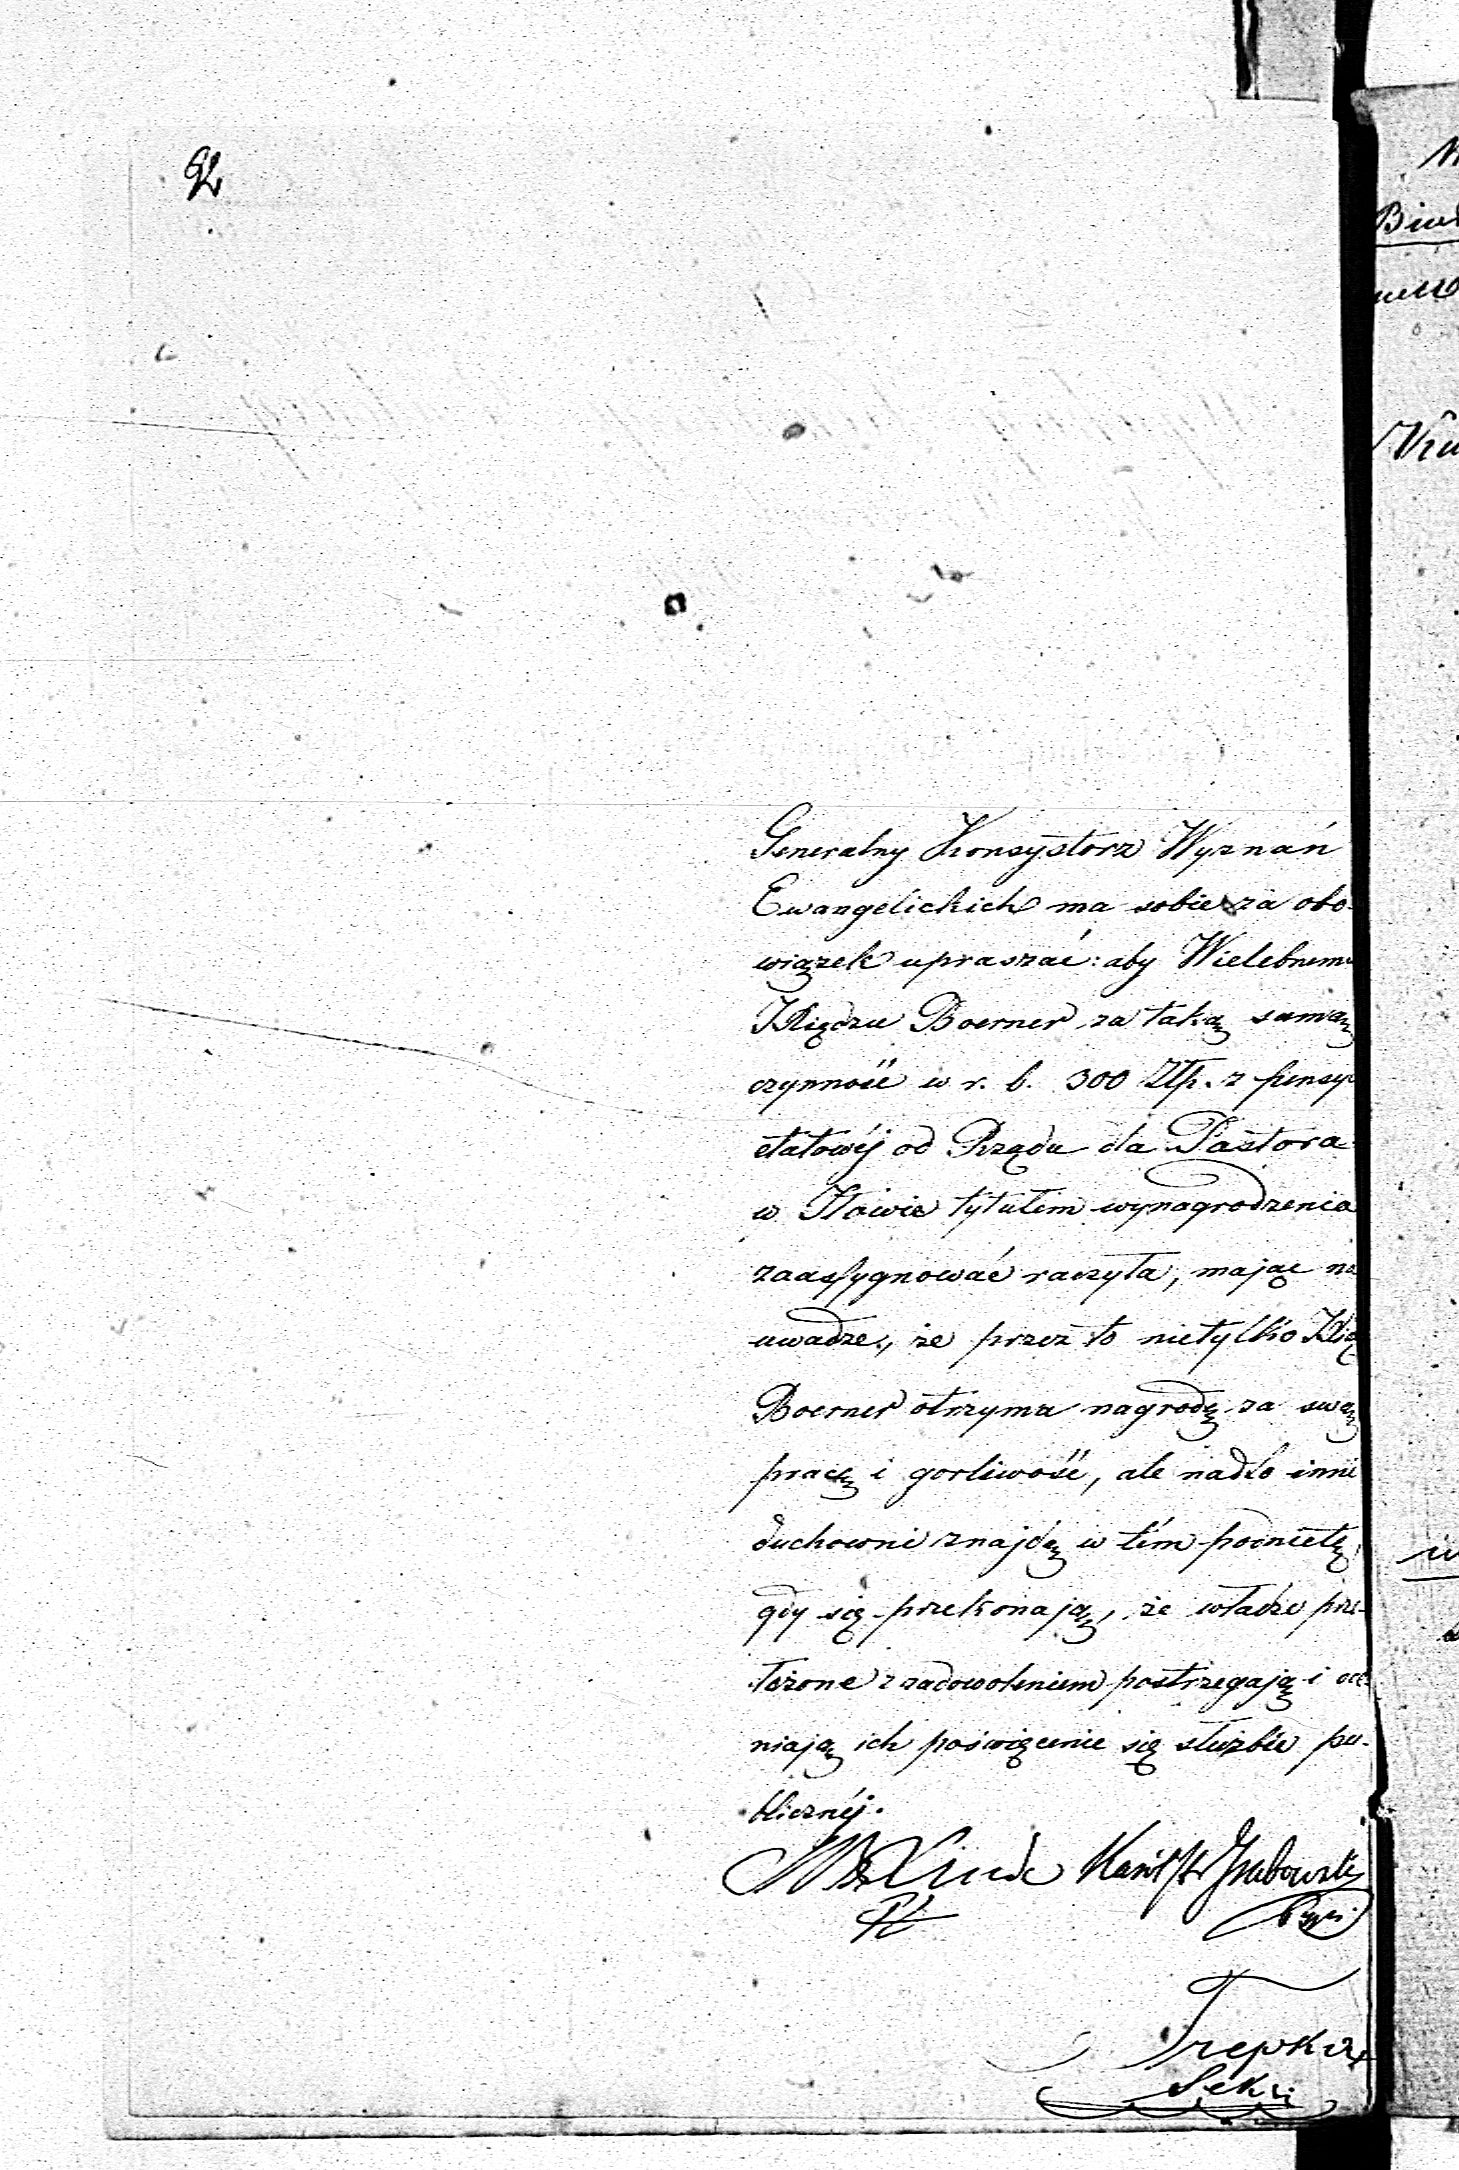 92
Generalny Konsystorz Wyznań
Ewangelickich ma sobie za obo-
wiązek upraszać: aby Wielebnemu
Xiędzu Boerner za taką samą
czynność w r. b. 300 Złp. z pensyi
etatowéj od Rządu dla Pastora
w Iławie tytułem wynagrodzenia
zaassygnować raczyła, mając na
uwadze, że przez to nietylko Xią
Boerner otrzyma nagrodę za swą
pracę i gorliwość, ale nadto inni
duchowni znajdą w tém podnietę,
gdy się przekonają, że władze prze-
łożone z zadowoleniem postrzegają i oce-
niają ich poświęcenie się służbie pu-
blicznéj.
Linde Karol Grabowski
Trepka
Sekr